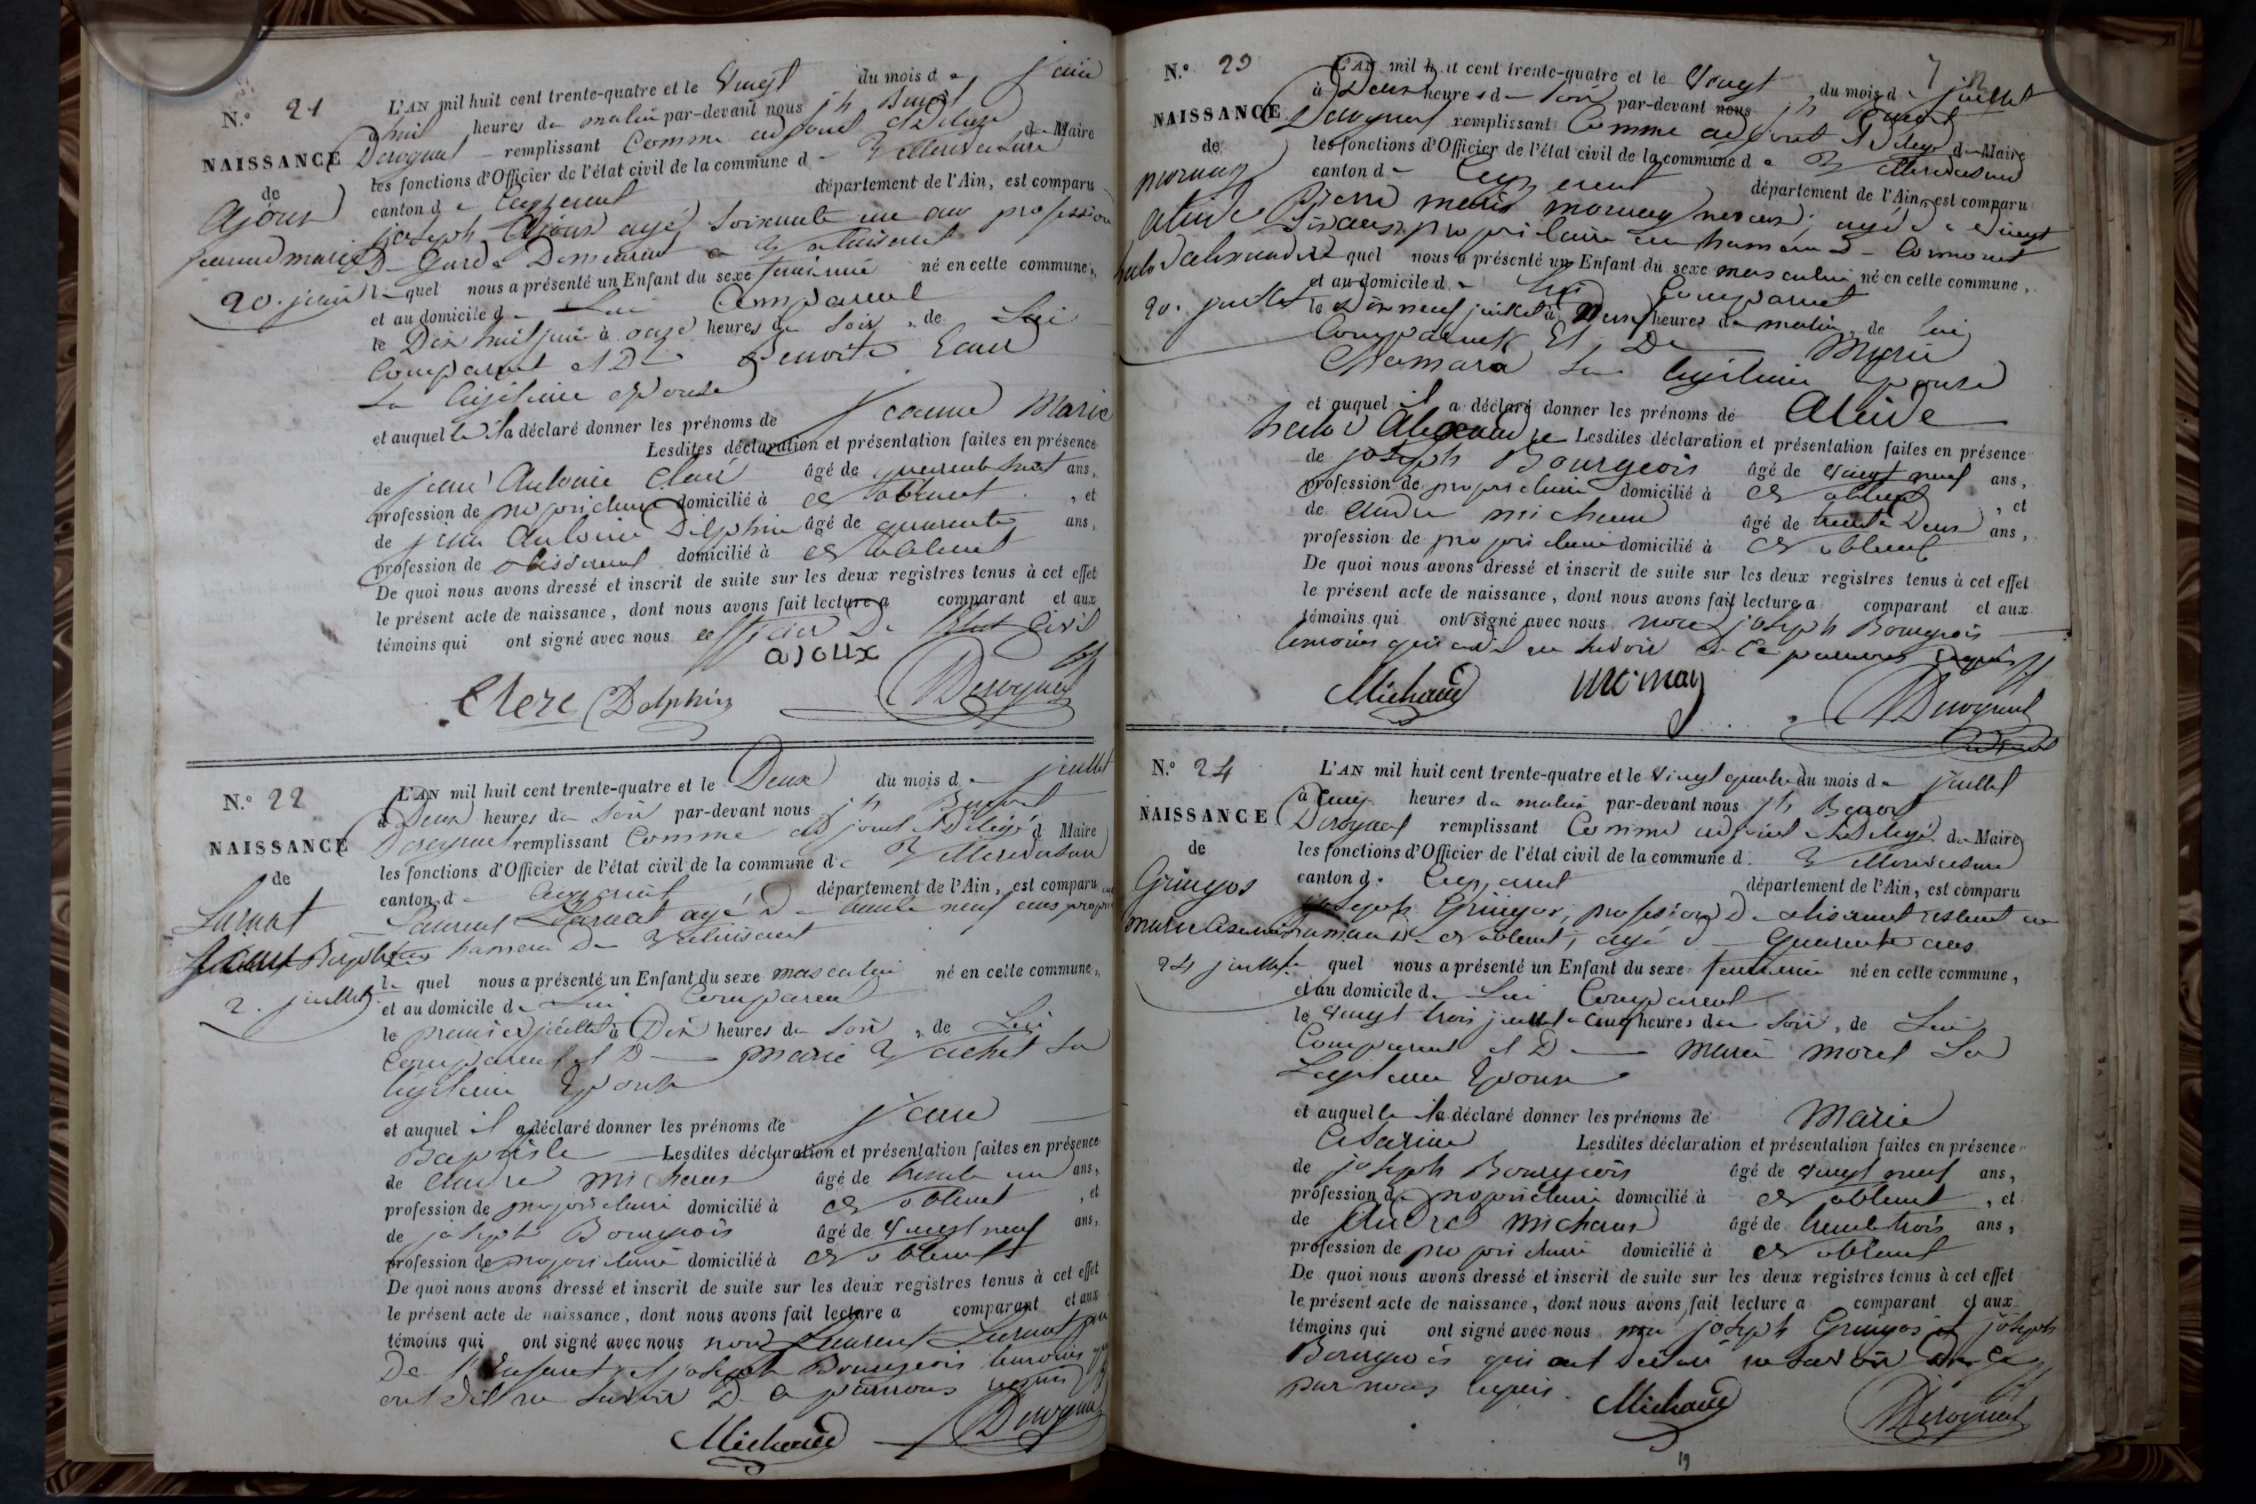 N.º 21
NAISSANCE
de
Ajoux
jeanne marie
20. juin
L'AN mil huit cent trente-quatre et le Vingt du mois de juin
à huit heures du matin par-devant nous jh Benoit
Derognat remplissant comme adjoint délégué du Maire
les fonctions d'Officier de l'état civil de la commune de Villereversure
canton de Ceyzeriat département de l'Ain, est comparu
joseph Ajoux agé soixante un ans profession
De Garde Demeurant a
le quel nous a présenté un Enfant du sexe féminin né en cette commune,
et au domicile de Lui Comparant
le Dix huit juin à onze heures du soir, de Lui
Comparant et De Benoite
Sa légitime épouse
et auquelle il a déclaré donner les prénoms de Jeanne Marie
Lesdites déclaration et présentation faites en présence
de jean Antoine Clerc âgé de quarante huit ans,
profession de propriétaire domicilié à , et
de jean Antoine Delphin âgé de quarante ans,
profession de tisserand domicilié à
De quoi nous avons dressé et inscrit de suite sur les deux registres tenus à cet effet
le présent acte de naissance, dont nous avons fait lecture a comparant et aux
témoins qui ont signé avec nous officier De l'état Civil
ajoux
Clerc Delphin Derognat
N.º 22
NAISSANCE
de
Larnat
jean Baptiste
2. juillet
L'AN mil huit cent trente-quatre et le Deux du mois de juillet
à Deux heures du soir par-devant nous jh Benoit
Derognat remplissant Comme adjoint délégué du Maire
les fonctions d'Officier de l'état civil de la commune de Villereversure
canton de Ceyzeriat département de l'Ain, est comparu
Laurent Larnat agé De trente neuf ans
hameau De
le quel nous a présenté un Enfant du sexe masculin né en cette commune,
et au domicile de Lui Comparant
le premier juillet à Dix heures du soir, de Lui
Comparant et De marie Vachet Sa
légitime Epouse
et auquel il a déclaré donner les prénoms de jean
Baptiste Lesdites déclaration et présentation faites en présence
de andré michaud âgé de trente un ans,
profession de propriétaire domicilié à , et
de joseph Bourgeois âgé de vingt neuf ans,
profession de propriétaire domicilié à
De quoi nous avons dressé et inscrit de suite sur les deux registres tenus à cet effet
le présent acte de naissance, dont nous avons fait lecture a comparant et aux
témoins qui ont signé avec nous non Laurent Larnat père
De l'Enfant et joseph Bourgeois temoins qui
ont dit ne savoir De ce par nous requis
Michaud Derognat
N.º 23
NAISSANCE
de
mornay
alcide
hector alexandre
20. juillet
L'AN mil huit cent trente-quatre et le Vingt du mois de juillet
à Deux heures du soir par-devant nous jh Benoit
Derognat remplissant Comme adjoint délégué du Maire
les fonctions d'Officier de l'état civil de la commune de Villereversure
canton de Ceyzeriat département de l'Ain, est comparu
Pierre marie mornay agé de Vingt
six ans propriétaire au hameau de Cormoret
le quel nous a présenté un Enfant du sexe masculin né en cette commune,
et au domicile de Lui Comparant
le Dix neuf juillet à heures du matin, de lui
Comparant Et De Marie
Chamara Sa légitime epouse
et auquel il a déclaré donner les prénoms de Alcide
hector Alexandre Lesdites déclaration et présentation faites en présence
de joseph Bourgeois âgé de vingt neuf ans,
profession de propriétaire domicilié à , et
de andré michaud âgé de trente Deux ans,
profession de propriétaire domicilié à
De quoi nous avons dressé et inscrit de suite sur les deux registres tenus à cet effet
le présent acte de naissance, dont nous avons fait lecture a comparant et aux
témoins qui ont signé avec nous non joseph Bourgeois
temoins qui a dit ne savoir de ce par nous requis
Michaud mornay Derognat
N.º 24
NAISSANCE
de
Gringoz
marie Césarine
24 juillet
L'AN mil huit cent trente-quatre et le Vingt quatre du mois de juillet
à Cinq heures du matin par-devant nous jh Benoit
Derognat remplissant Comme adjoint délégué du Maire
les fonctions d'Officier de l'état civil de la commune de Villereversure
canton de Ceyzeriat département de l'Ain, est comparu
joseph Gringoz, profession De tisserand restant au
hameau de , agé de Quarante ans
le quel nous a présenté un Enfant du sexe feminin né en cette commune,
et au domicile de Lui Comparant
le Vingt trois juillet a Cinq heures du soir, de Lui
Comparant et De Marie morel Sa
Légitime Epouse
et auquelle il a déclaré donner les prénoms de Marie
Césarine Lesdites déclaration et présentation faites en présence
de joseph Bourgeois âgé de vingt neuf ans,
profession de propriétaire domicilié à , et
de André michaud âgé de trente trois ans,
profession de propriétaire domicilié à
De quoi nous avons dressé et inscrit de suite sur les deux registres tenus à cet effet
le présent acte de naissance, dont nous avons fait lecture a comparant et aux
témoins qui ont signé avec nous non joseph Gringoz et joseph
Bourgeois qui ont déclaré ne savoir De ce
par nous requis.
Michaud Derognat
19